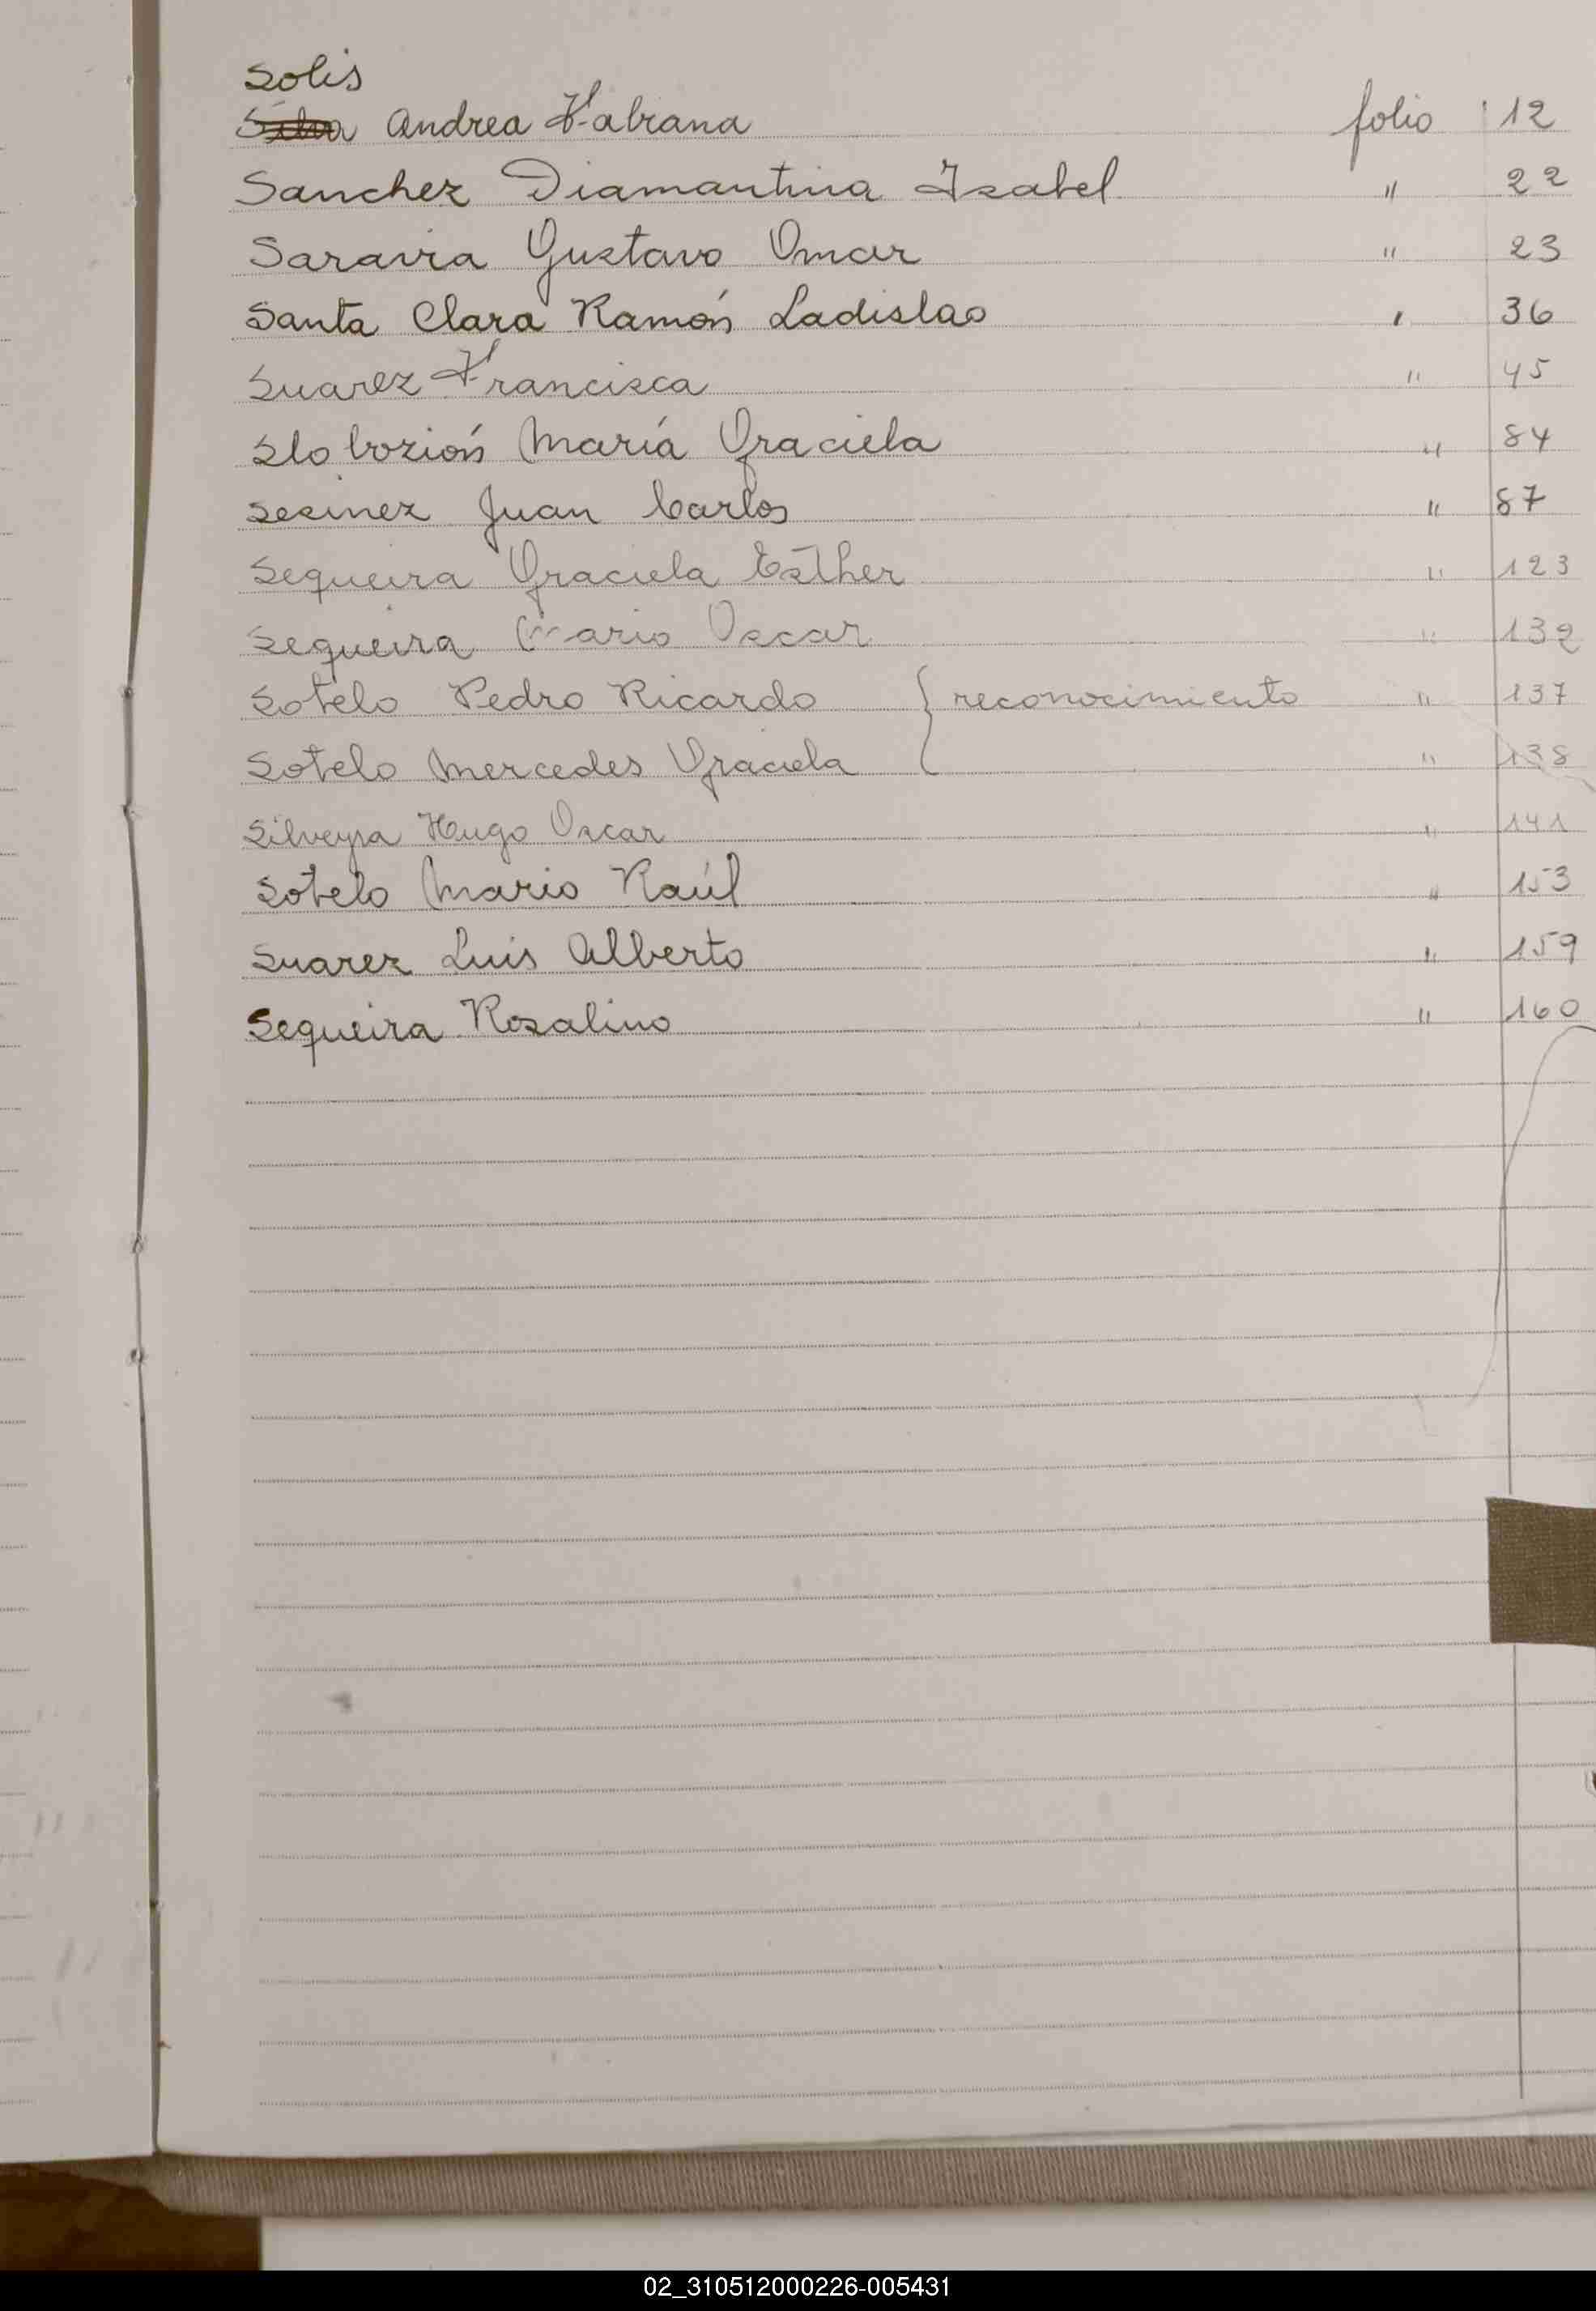 Solis
Silva Andrea Fabiana folio 12
Sanchez Diamantina Isabel " 22
Saravia Gustavo Omar " 23
Santa Clara Ramón Ladislao ' 36
Suarez Francisca " 45
Slobozión María Graciela " 84
Sesinez Juan Carlos " 87
Sequeira Graciela Esther " 123
Sequeira Mario Oscar " 132
Sotelo Pedro Ricardo { reconocimiento " 137
Sotelo Mercedes Graciela " 138
Silveyra Hugo Oscar " 141
Sotelo Mario Raúl " 153
Suarez Luis Alberto " 159
Sequeira Rosalino " 160
02_310512000226-005431